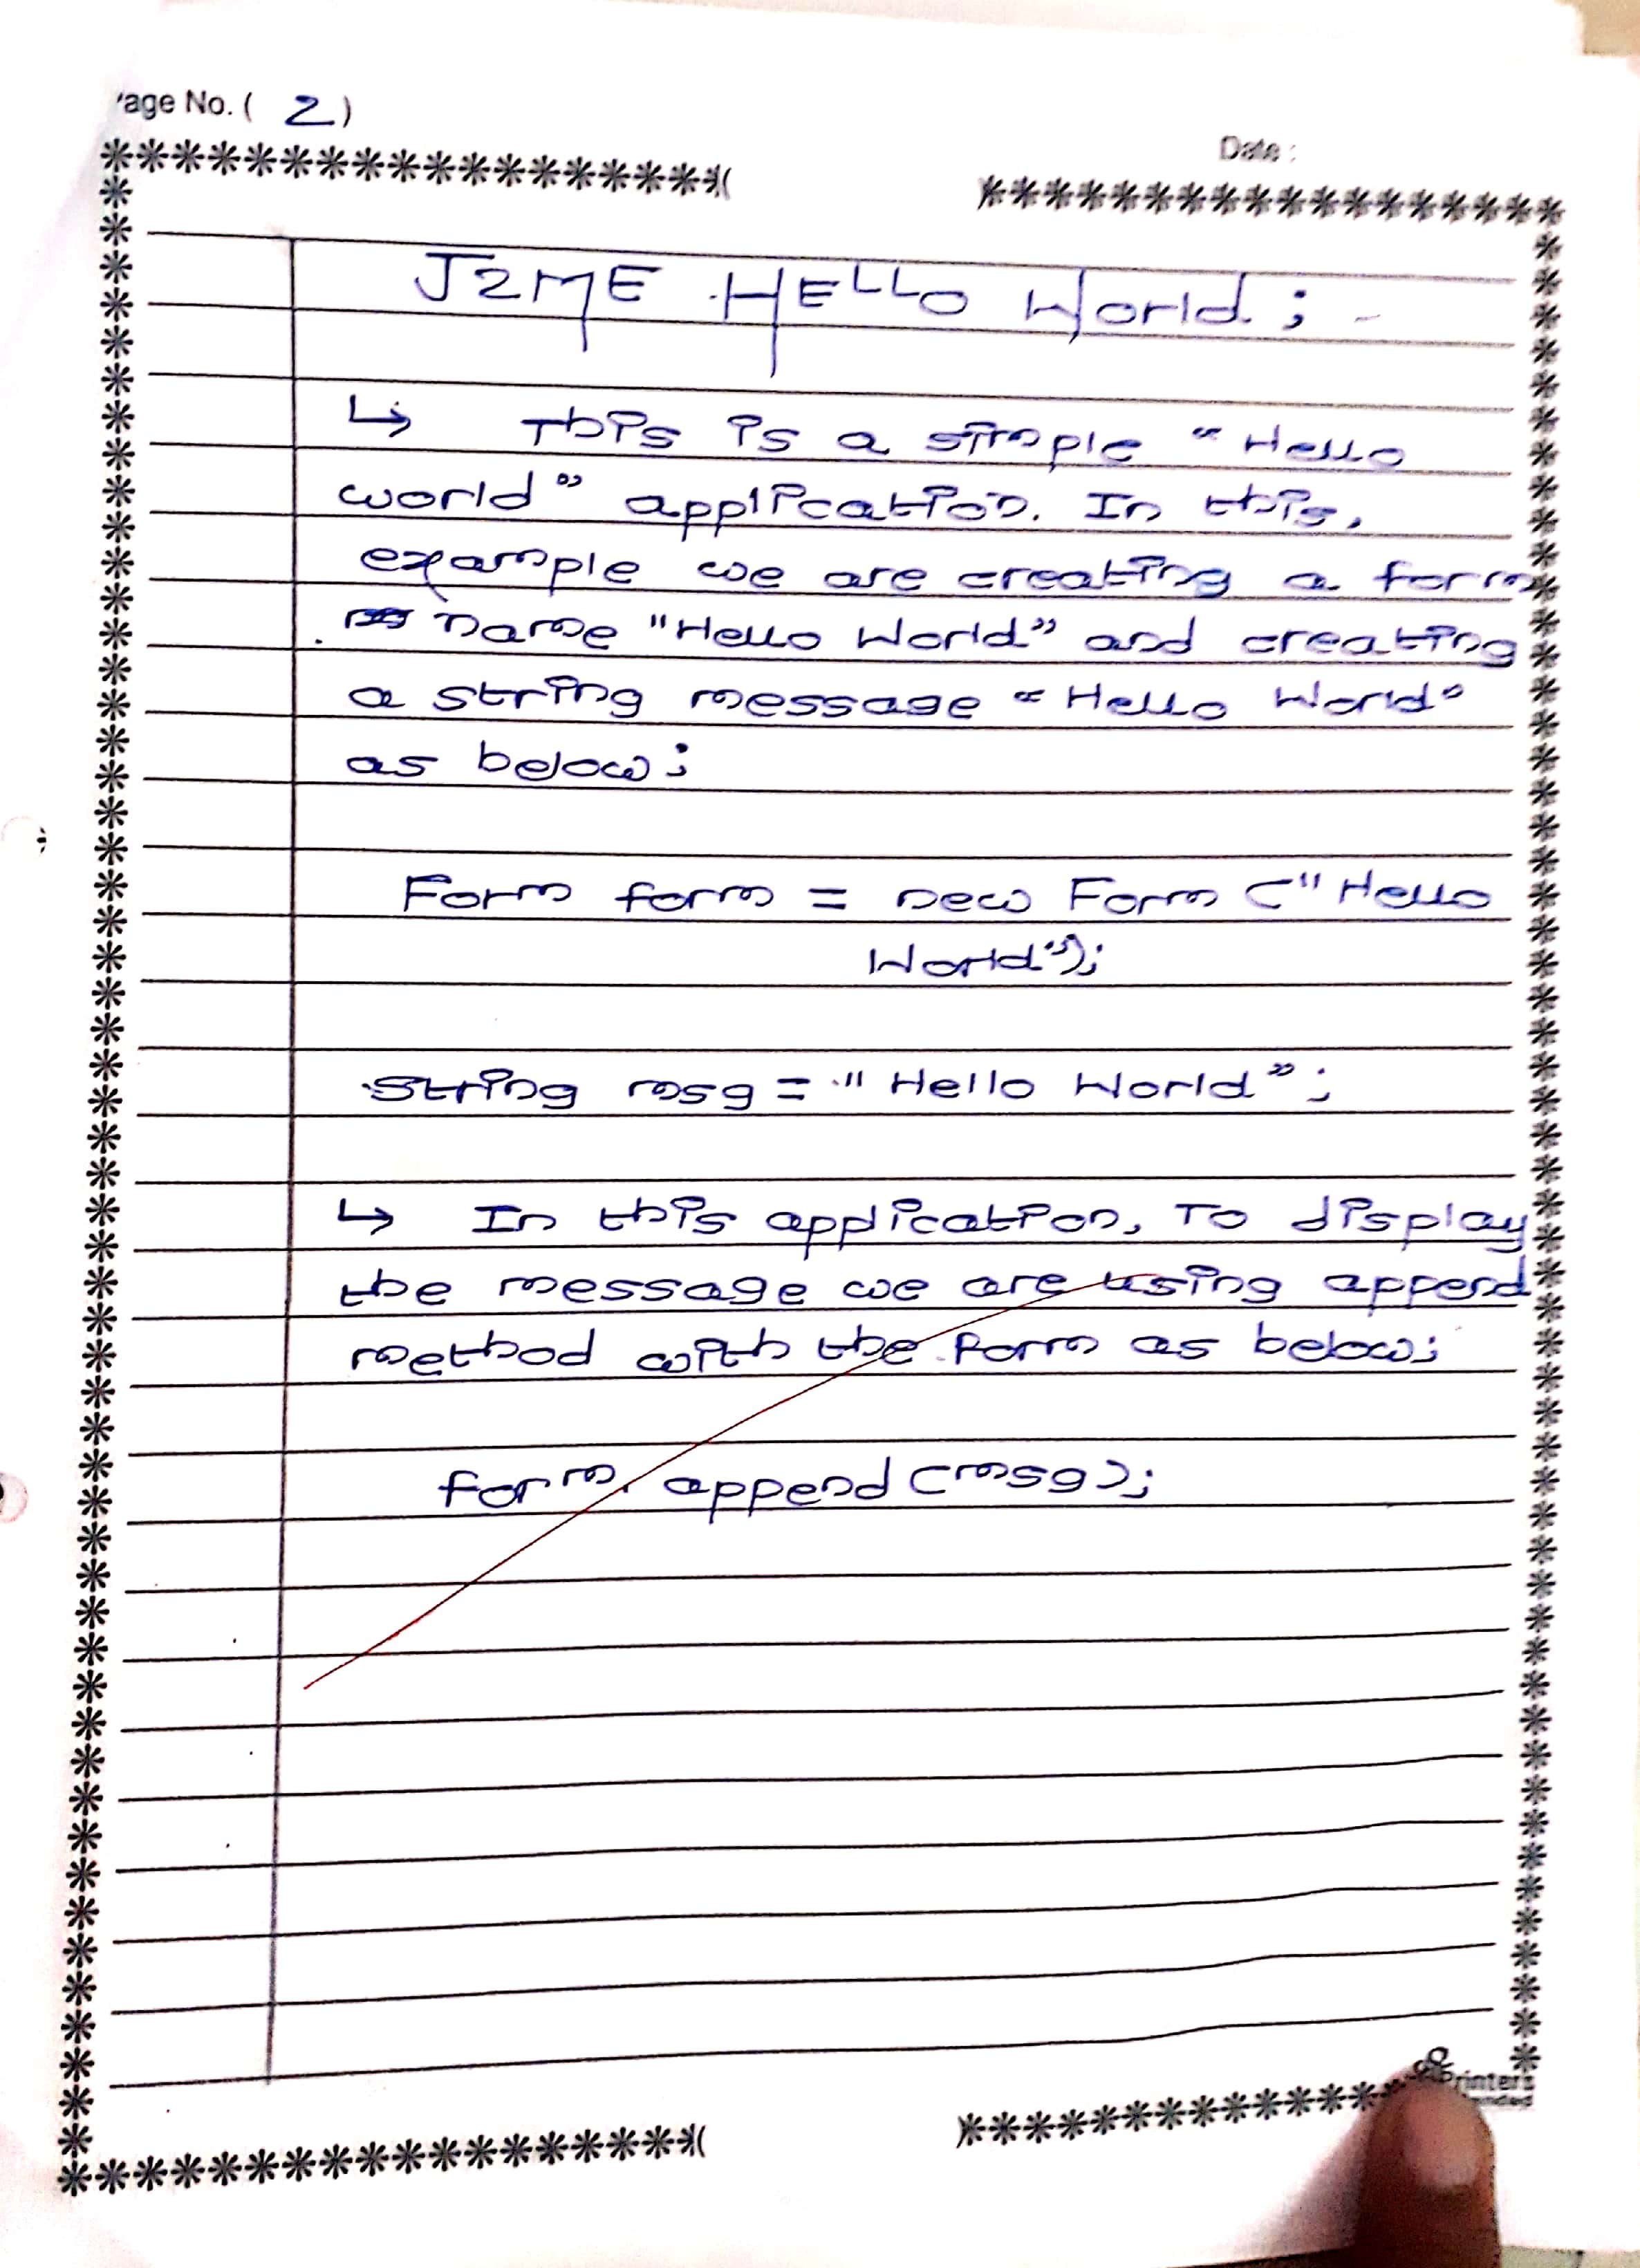 age No. ( 2 )
Date :
J2ME HELLO World ; -
↳ This is a simple "Hello
world" application. In this,
example we are creating a form
name "Hello World" and creating
a string message "Hello World"
as below ;
Form form = new Form ("Hello
World");
String msg = "Hello World" ;
↳ In this application, To display
the message we are using append
method with the form as below;
form. append (msg);
rinters